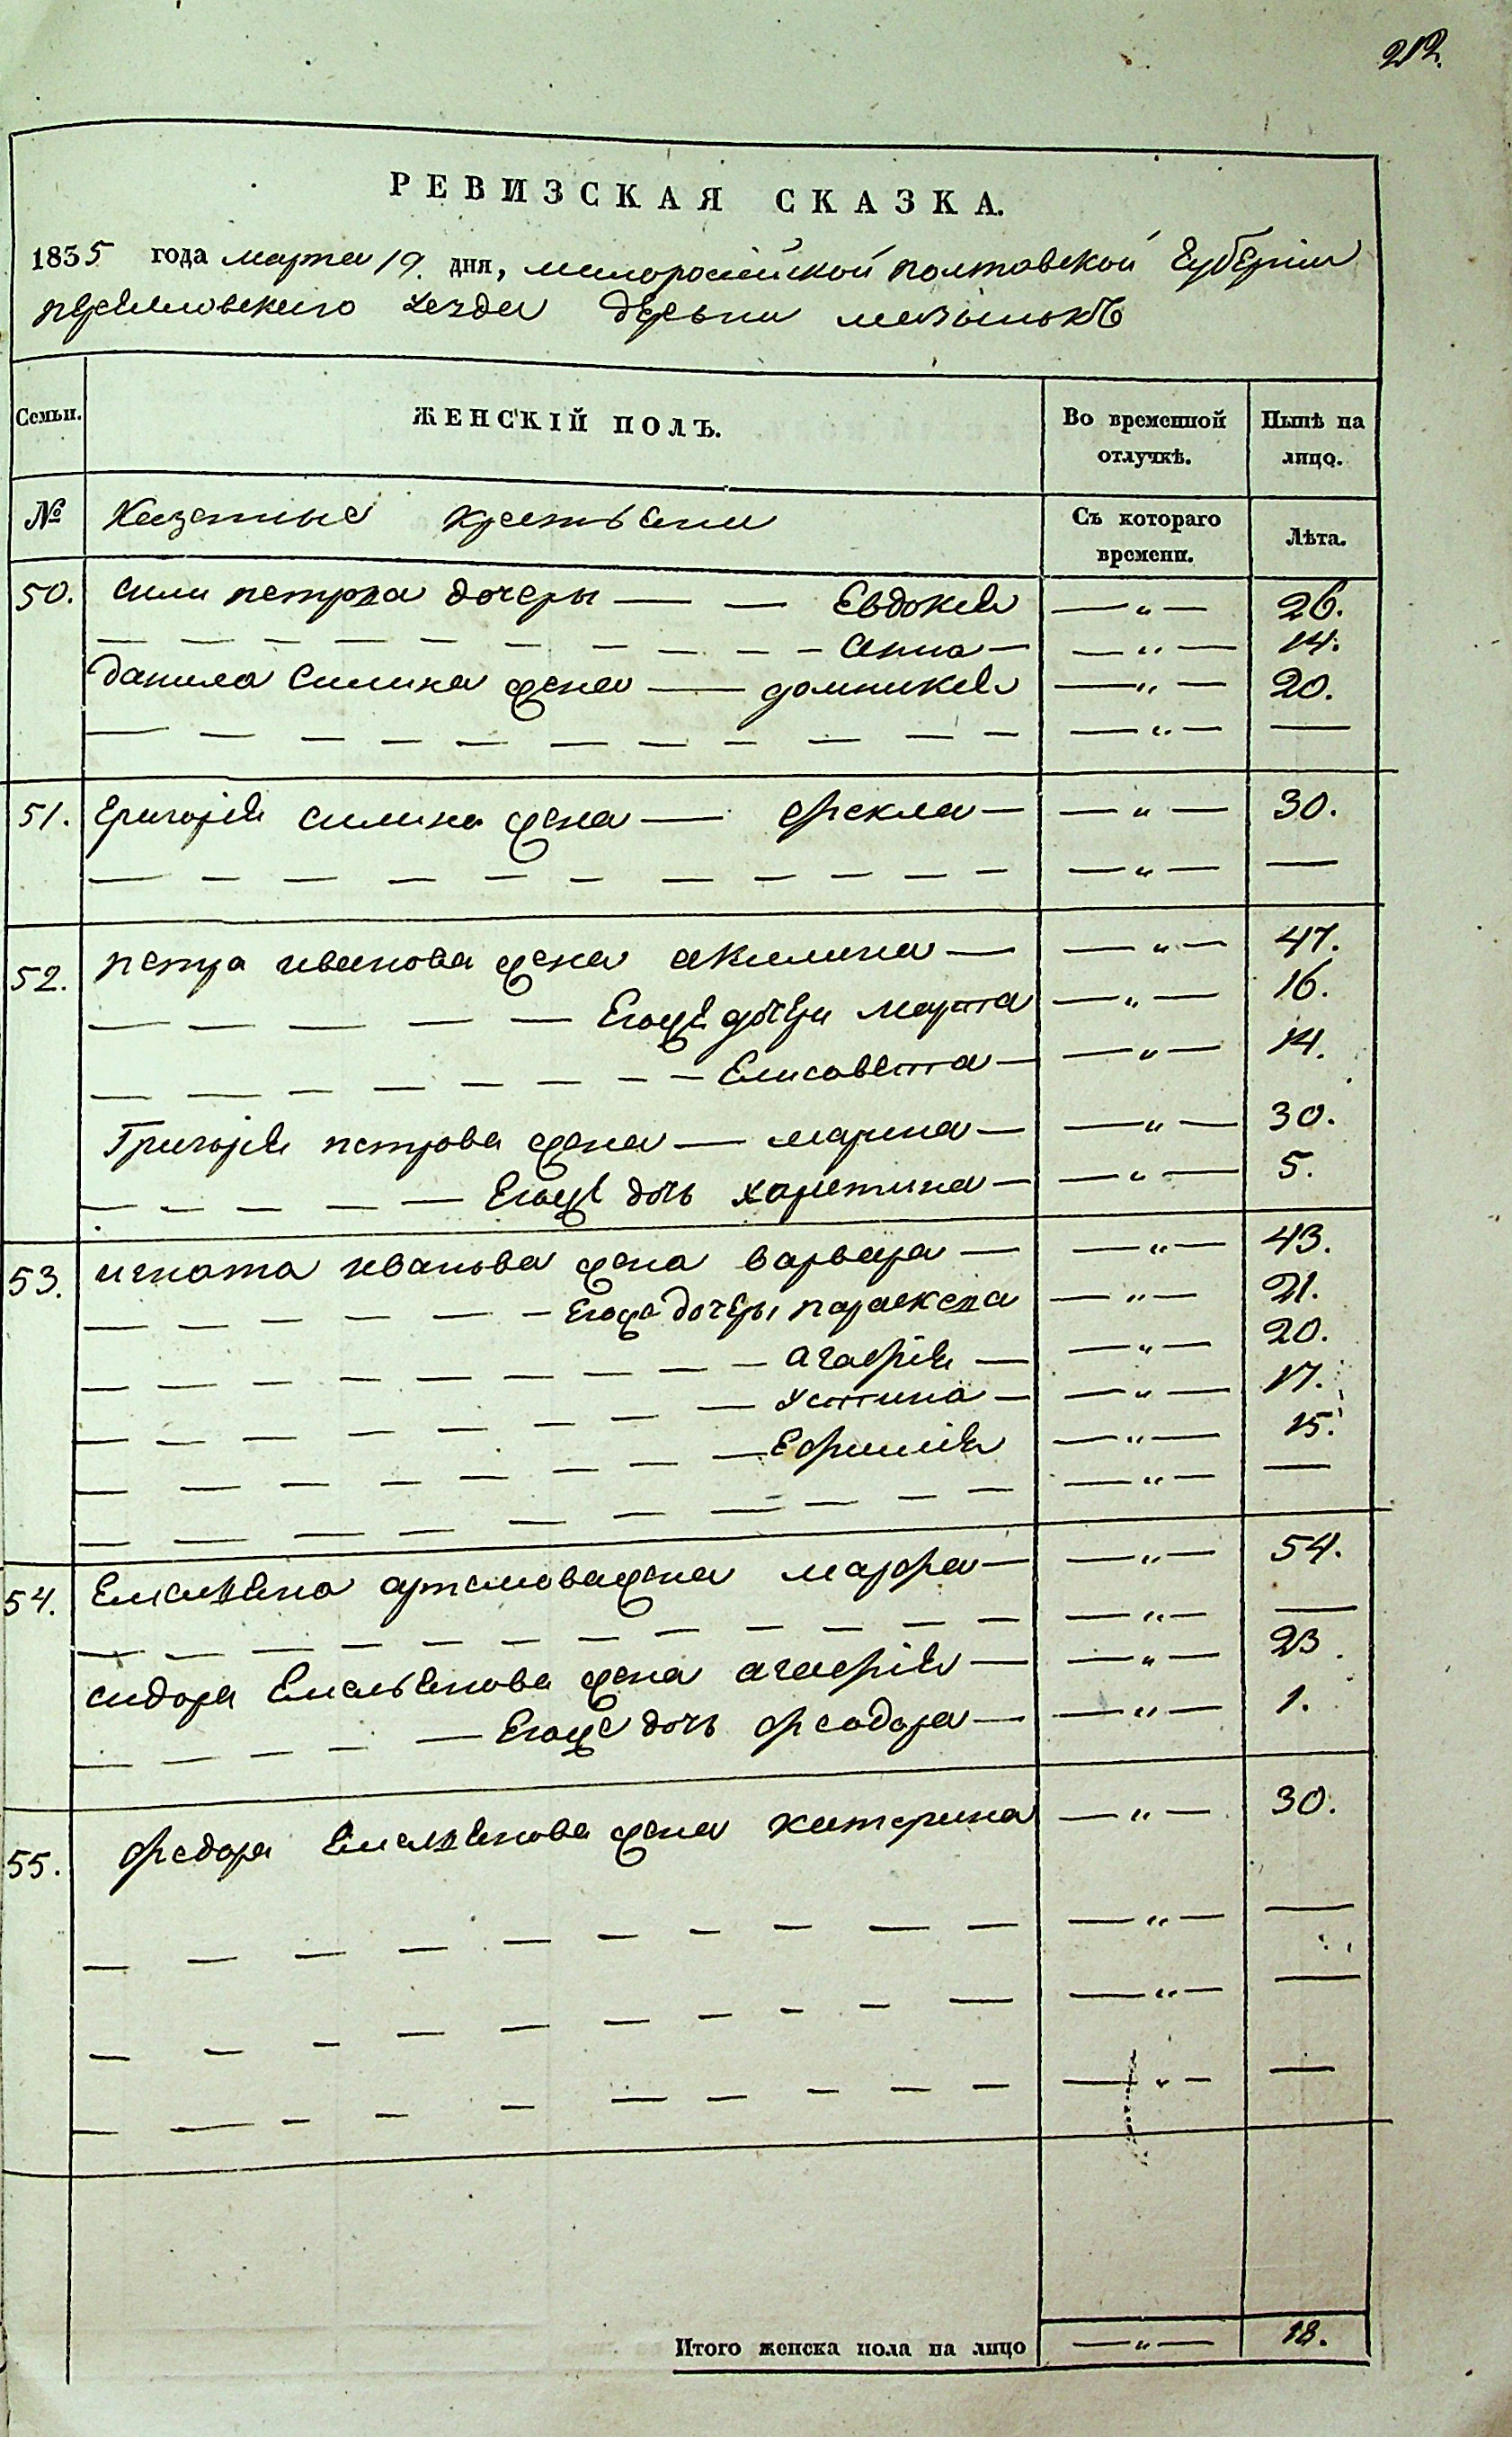 212.
РЕВИЗСКАЯ СКАЗКА.
1835 года марта 19. дня, малоросийской полтавской Губернии
уезда деревни
Семьи. ЖЕНСКІЙ ПОЛЪ. Во временной отлучкѣ. Нынѣ на лицо.
№ Казенные крестьяни Съ котораго времени. Лѣта.
50. Сили петрова дочеры — — Евдокия — „ — 26.
— — — — — — — — — Анна — — „ — 14.
данила Силина жена — домникия — „ — 20.
— — — — — — — — — — — — „ — —
51. Григория силина жена — фекла — — „ — 30.
— — — — — — — — — — — — „ — —
52. петра иванова жена акилина — — „ — 47.
— — — — — — Егоже дочери марта — „ — 16.
— — — — — — — — Елисавета — — „ — 14.
Григория петрова жена — марина — — „ — 30.
— — — — — Егоже дочь харитина — — „ — 5.
53. игната иванова жена варвара — — „ — 43.
— — — — — — Егоже дочеры параскева — „ — 21.
— — — — — — — — — агафия — — „ — 20.
— — — — — — — — Устина — — „ — 17.
— — — — — — — — Ефимия — „ — 15.
— — — — — — — — — — — — „ — —
54. Емельяна артемова жена марфа — — „ — 54.
— — — — — — — — — — — — „ — —
сидора Емельянова жена агафия — — „ — 23.
— — — — — Егоже дочь феодора — — „ — 1.
55. федора Емельянова жена катерина — „ — 30.
— — — — — — — — — — — „ — —
— — — — — — — — — — — „ — —
— — — — — — — — — — — „ — —
Итого женска пола на лицо — „ — 18.